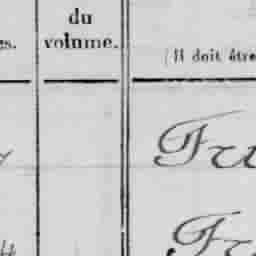 du
es. volume. (Il doit être
Fru
Fr